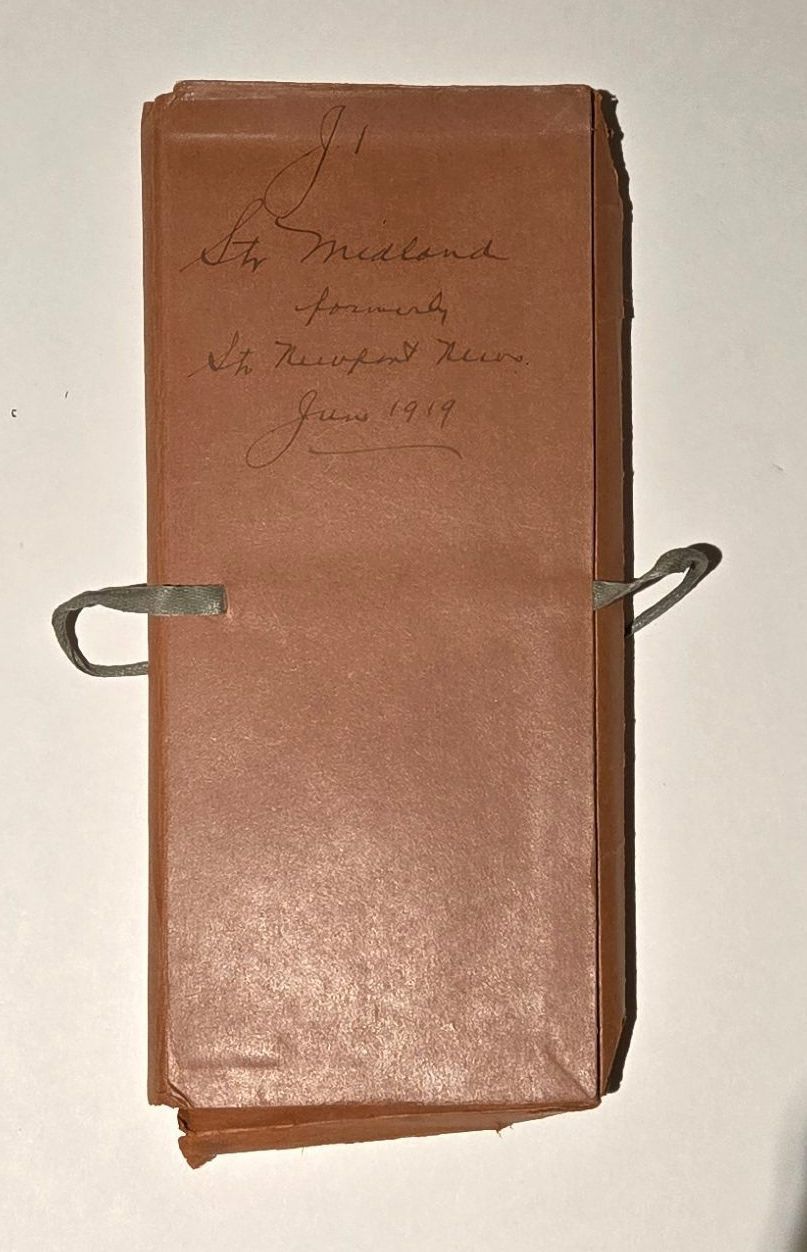 J 1
Str Midland
formerly
Str Newport News.
June 1919